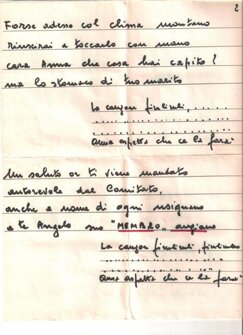 2
Forse adesso col clima montano
riuscirai a toccarlo con mano
cara Anna che cosa hai capito?
ma lo stomaco di tuo marito
La canzon finlinli, ...
.....................
Anna aspetta che ce la farà
Un saluto or ti viene mandato
autorevole dal Comitato,
anche a nome di ogni insegnano
a te Angelo suo "MEMBRO" anziano
La canzon finlinli, finlinlin
.....................
Anna aspetta che ce la farà